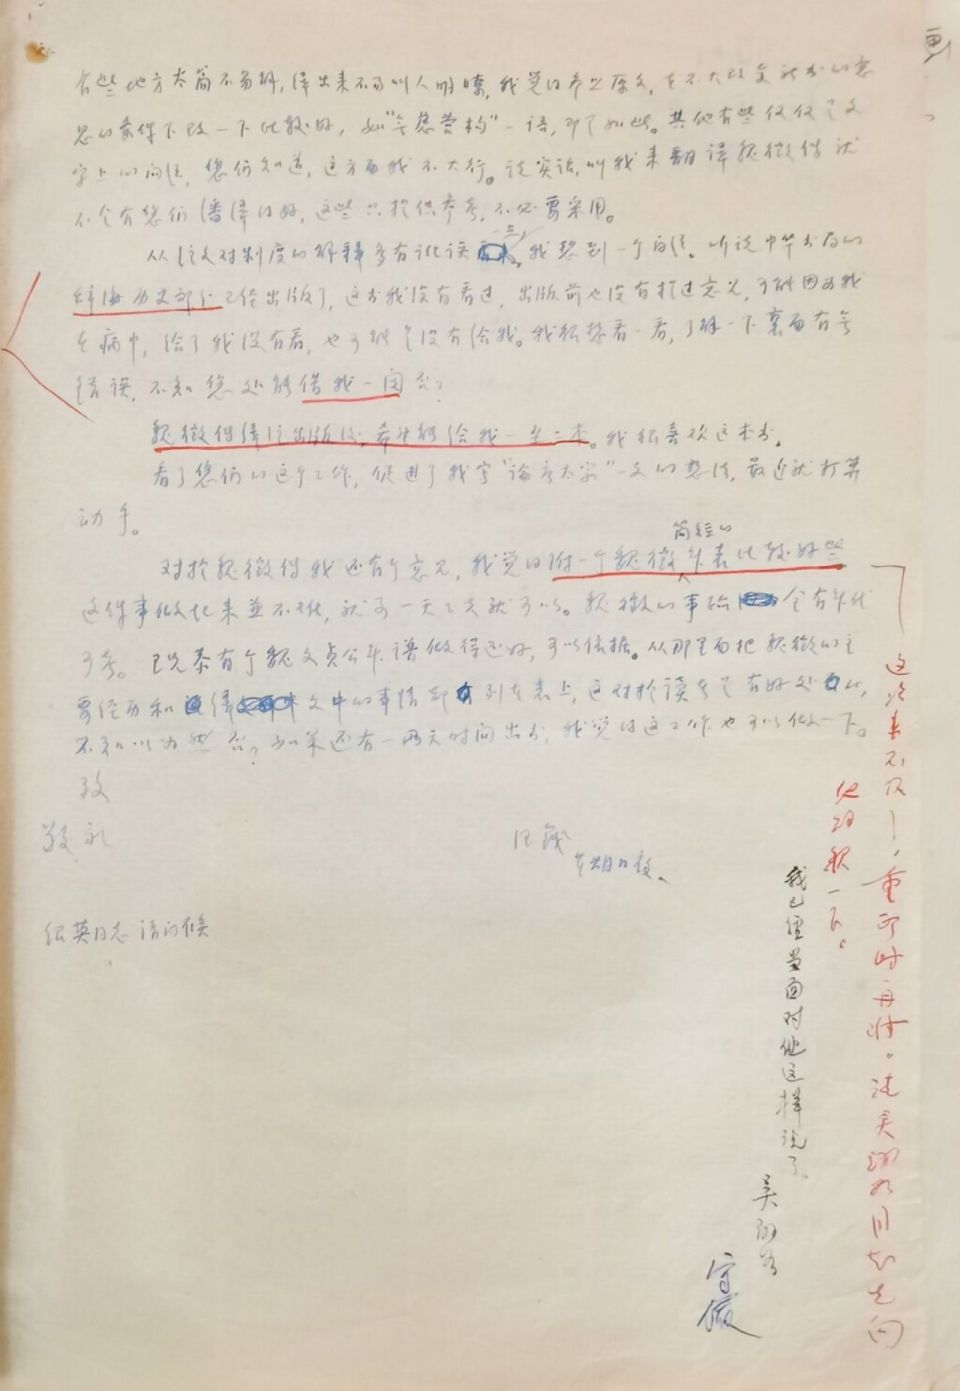 有些地方太简不易解，译出来不易叫人明瞭，我觉得参照原文，在不大改变成书的意
思的条件下改一下比较好，如“辛愍营构”一语，即了如此。其他有些仅仅了文
字上的问题，您们知道，这方面我不大行。说实话，叫我来翻译魏徵传就
不会有您们翻译得好，这些只于供参考，不必要采用。
从注文对制度的解释多有讹误一点，我想到一个问题。听说中华书局的
辞海历史部分已经出版了，这书我没有看过，出版前也没有打过意见，可能因为我
在病中，给了我没有看，也可能没有给我。我很想看一看，了解一下里面有无
错误，不知您处能借我一阅否？
魏徵传译注出版后，希望能给我一至二本。我很喜欢这本书。
看了您们的这个工作，促进了我写“论唐太宗”一文的想法，最近就打算
动手。
对于魏徵传我还有个意见，我觉得附一个简短的魏徵年表比较好些
这件事做起来並不难，就可一天工夫就可以。魏徵的事迹全有年代
可考。王先恭有个魏文贞公年谱做得还好，可以依据。从那里面把魏徵的主
要经历和译文中的事情都列在表上，这对于读者是有好处的，
不知以为然否？如果还有一两天时间出书，我觉得这工作也可以做一下。
致
敬礼
汪籛
绍英同志请问候
这次来不及了，重印时再附。请吴翊如同志先问
他约稿一下。
我已经当面对他这样说了。
吴翊如
守俨